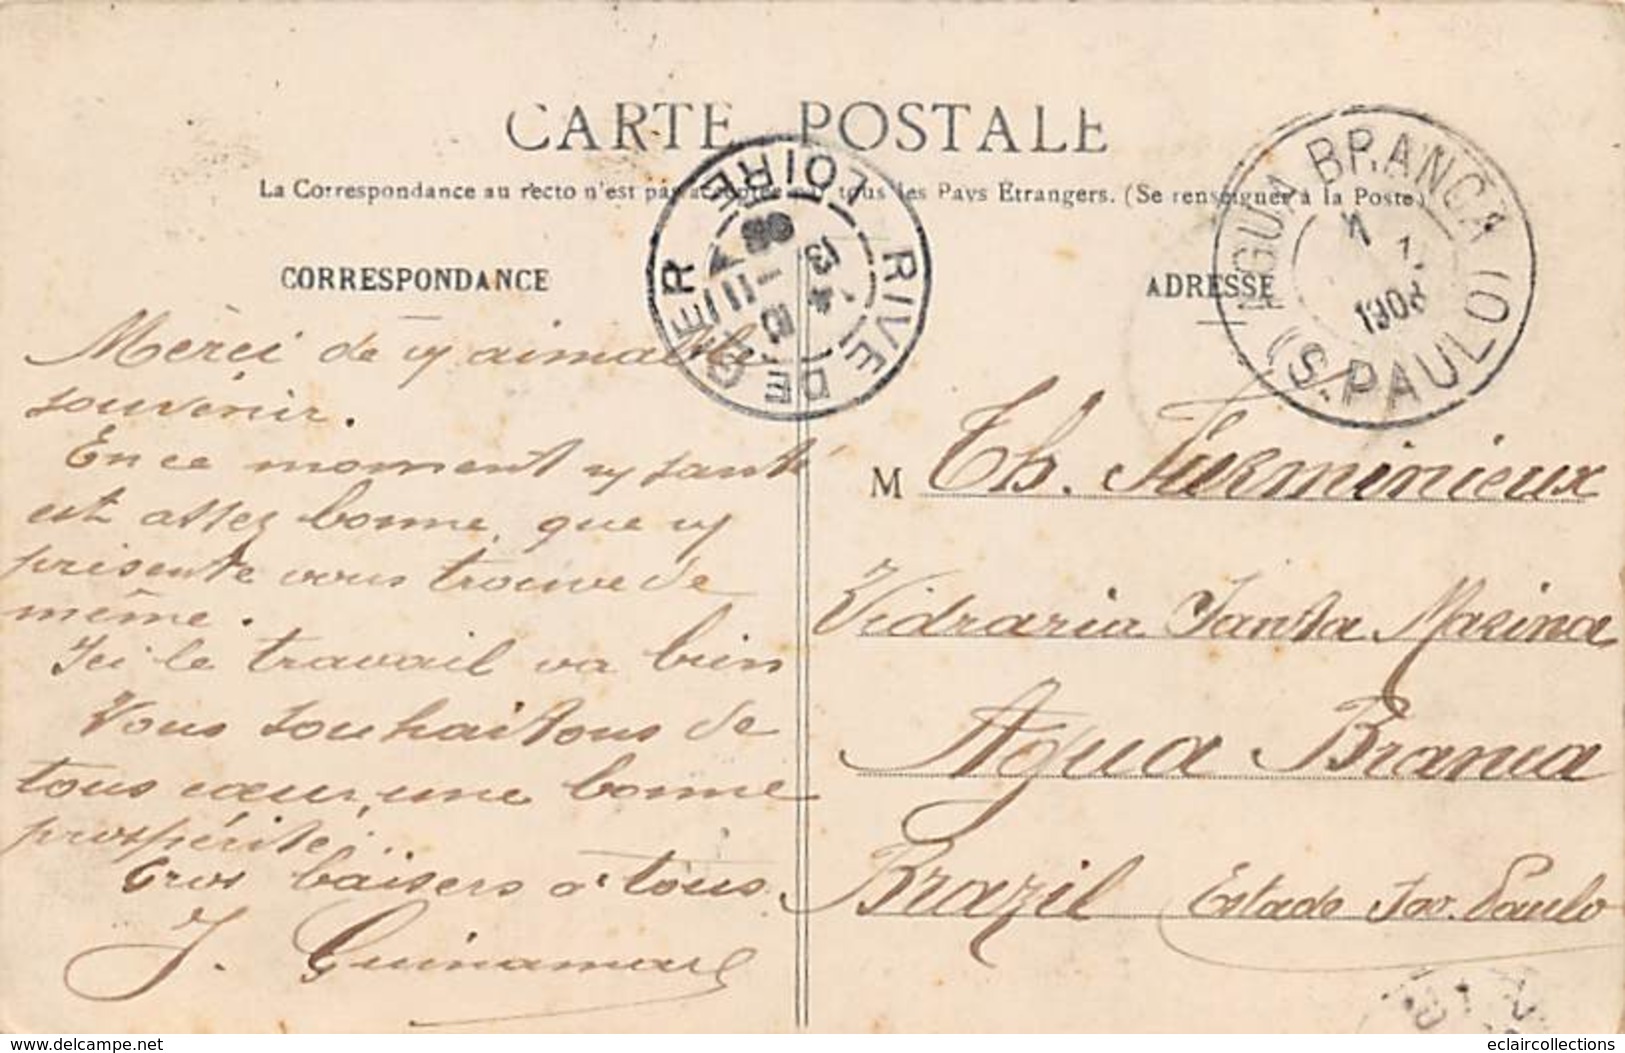 CARTE POSTALE
La Correspondance au recto n'est pas acceptée par tous les Pays Étrangers. (Se renseigner à la Poste)
CORRESPONDANCE
Mèrci de vs aimable
souvénir.
En ce moment ns santé
est assez bonne, que ns
présente vous trouve de
même.
Ici le travail va bien
Vous souhaitons de
tous cœur, une bonne
prospérité.
Gros baisers a tous.
J. Guinamard
RIVE DE GIER
LOIRE
13 - 4
08
AGUA BRANCA
(S. PAULO)
1908
ADRESSE
M Th. Furminieux
Vidraria Santa Marina
Agua Branca
Brazil Estado Sao. Paulo
eclaircollections